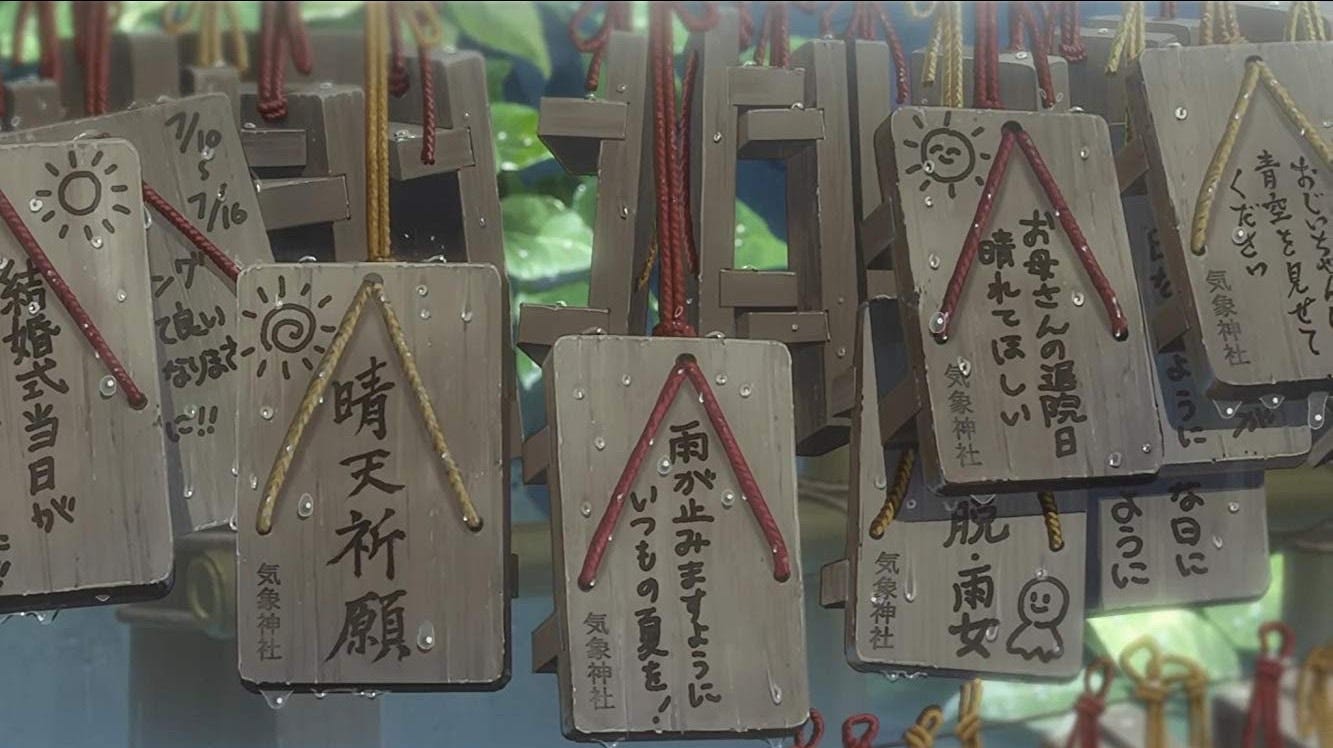 結婚式当日が
7/10
〜
7/16
て良い
なります
に!!
晴天祈願
気象神社
雨が止みますように
いつもの夏を!
気象神社
お母さんの退院日
晴れてほしい
気象神社
脱・雨女
気象神社
ように
な日に
ように
おじいちゃんに
青空を見せて
ください
気象神社